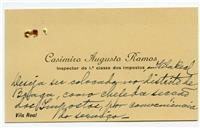 Casimiro Augusto Ramos
Inspector de 1.ª classe dos impostos em Vila Real
Deseja ser colocado no distrito de
Braga, como chefe da secção
dos Impostos, por conveniência
do serviço.
Vila Real